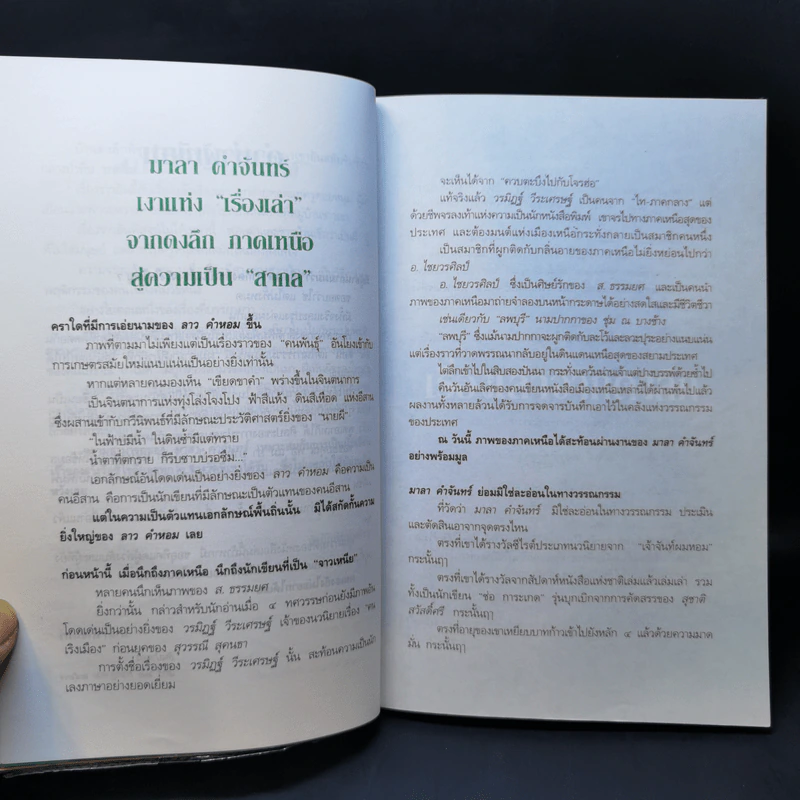 มาลา คำจันทร์
เงาแห่ง "เรื่องเล่า"
จากดงลึก ภาคเหนือ
สู่ความเป็น "สากล"
คราใดที่มีการเอ่ยนามของ ลาว คำหอม ขึ้น
ภาพที่ตามมาไม่เพียงแต่เป็นเรื่องราวของ "คนพันธุ์" อันโยงเข้ากับ
การเกษตรสมัยใหม่แนบแน่นเป็นอย่างยิ่งเท่านั้น
หากแต่หลายคนมองเห็น "เขียดขาคำ" พร่างขึ้นในจินตนาการ
เป็นจินตนาการแห่งทุ่งโล่งโจงโปง ฟ้าสีแห้ง ดินสีเหือด แห่งอีสาน
ซึ่งผสานเข้ากับกวีนิพนธ์ที่มีลักษณะประวัติศาสตร์ยิ่งของ "นายผี"
"ในฟ้าบ่มีน้ำ ในดินซ้ำมีแต่ทราย
น้ำตาที่ตกราย ก็รีบซาบบ่รอซึม..."
เอกลักษณ์อันโดดเด่นเป็นอย่างยิ่งของ ลาว คำหอม คือความเป็น
คนอีสาน คือการเป็นนักเขียนที่มีลักษณะเป็นตัวแทนของคนอีสาน
แต่ในความเป็นตัวแทนเอกลักษณ์พื้นถิ่นนั้น มิได้สกัดกั้นความ
ยิ่งใหญ่ของ ลาว คำหอม เลย
ก่อนหน้านี้ เมื่อนึกถึงภาคเหนือ นึกถึงนักเขียนที่เป็น "จาวเหนือ"
หลายคนนึกเห็นภาพของ ส. ธรรมยศ
ยิ่งกว่านั้น กล่าวสำหรับนักอ่านเมื่อ ๔ ทศวรรษก่อนยังมีภาพอัน
โดดเด่นเป็นอย่างยิ่งของ วรมิฏฐ์ วีระเศรษฐ์ เจ้าของนวนิยายเรื่อง "คน
เริงเมือง" ก่อนยุคของ สุวรรณี สุคนธา
การตั้งชื่อเรื่องของ วรมิฏฐ์ วีระเศรษฐ์ นั้น สะท้อนความเป็นนัก
เลงภาษาอย่างยอดเยี่ยม
จะเห็นได้จาก "ควบตะบึงไปกับโจรฮ่อ"
แท้จริงแล้ว วรมิฏฐ์ วีระเศรษฐ์ เป็นคนจาก "ไท-ภาคกลาง" แต่
ด้วยชีพจรลงเท้าแห่งความเป็นนักหนังสือพิมพ์ เขาจรไปทางภาคเหนือสุดของ
ประเทศ และต้องมนต์แห่งเมืองเหนือกระทั่งกลายเป็นสมาชิกคนหนึ่ง
เป็นสมาชิกที่ผูกติดกับกลิ่นอายของภาคเหนือไม่ยิ่งหย่อนไปกว่า
อ. ไชยวรศิลป์
อ. ไชยวรศิลป์ ซึ่งเป็นศิษย์รักของ ส. ธรรมยศ และเป็นคนนำ
ภาพของภาคเหนือมาถ่ายจำลองบนหน้ากระดาษได้อย่างสดใสและมีชีวิตชีวา
เช่นเดียวกับ "ลพบุรี" นามปากกาของ ชุ่ม ณ บางช้าง
"ลพบุรี" ซึ่งแม้นามปากกาจะผูกติดกับละโว้และลวะปุระอย่างแนบแน่น
แต่เรื่องราวที่วาดพรรณนากลับอยู่ในดินแดนเหนือสุดของสยามประเทศ
ไต่ลึกเข้าไปในสิบสองปันนา กระทั่งแคว้นน่านเจ้าแต่ปางบรรพ์ด้วยซ้ำไป
คืนวันอันเลิศของคนเขียนหนังสือเมืองเหนือเหล่านี้ได้ผ่านพ้นไปแล้ว
ผลงานทั้งหลายล้วนได้รับการจดจารบันทึกเอาไว้ในคลังแห่งวรรณกรรม
ของประเทศ
ณ วันนี้ ภาพของภาคเหนือได้สะท้อนผ่านงานของ มาลา คำจันทร์
อย่างพร้อมมูล
มาลา คำจันทร์ ย่อมมิใช่ละอ่อนในทางวรรณกรรม
ที่วัดว่า มาลา คำจันทร์ มิใช่ละอ่อนในทางวรรณกรรม ประเมิน
และตัดสินเอาจากจุดตรงไหน
ตรงที่เขาได้รางวัลซีไรต์ประเภทนวนิยายจาก "เจ้าจันท์ผมหอม"
กระนั้นฤา
ตรงที่เขาได้รางวัลจากสัปดาห์หนังสือแห่งชาติเล่มแล้วเล่มเล่า รวม
ทั้งเป็นนักเขียน "ช่อ การะเกด" รุ่นบุกเบิกจากการคัดสรรของ สุชาติ
สวัสดิ์ศรี กระนั้นฤา
ตรงที่อายุของเขาเหยียบบาทก้าวเข้าไปยังหลัก ๔ แล้วด้วยความมาด
มั่น กระนั้นฤา